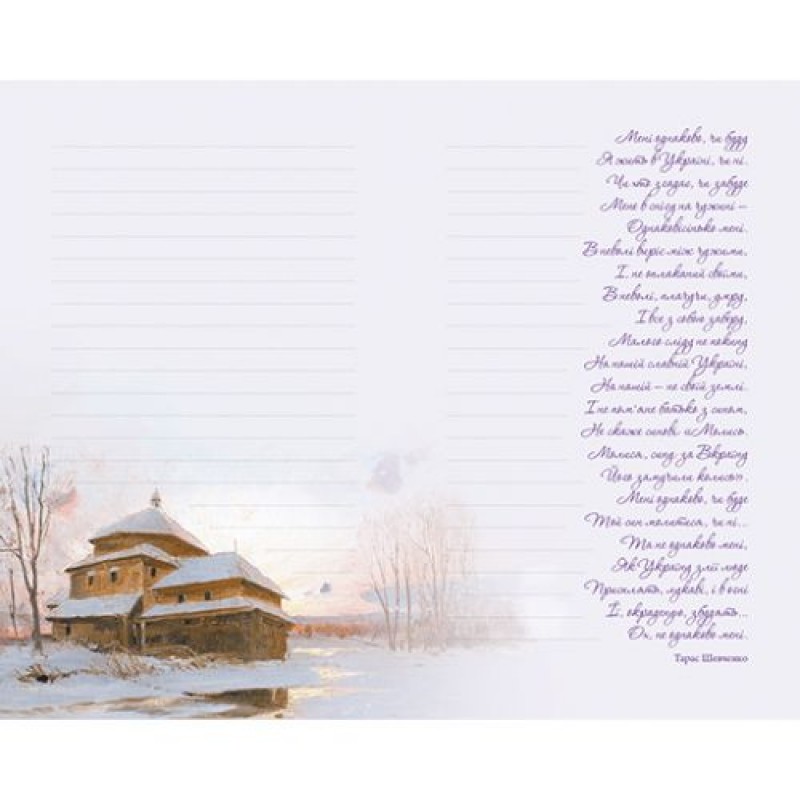 Мені однаково, чи буду
Я жить в Україні, чи ні.
Чи хто згадає, чи забуде
Мене в снігу на чужині —
Однаковісінько мені.
В неволі виріс між чужими,
І, не оплаканий своїми,
В неволі, плачучи, умру,
І все з собою заберу,
Малого сліду не покину
На нашій славній Україні,
На нашій — не своїй землі.
І не пом'яне батько з сином,
Не скаже синові: «Молись.
Молися, сину: за Вкраїну
Його замучили колись».
Мені однаково, чи буде
Той син молитися, чи ні...
Та не однаково мені,
Як Україну злії люде
Присплять, лукаві, і в огні
Її, окраденую, збудять...
Ох, не однаково мені.
Тарас Шевченко